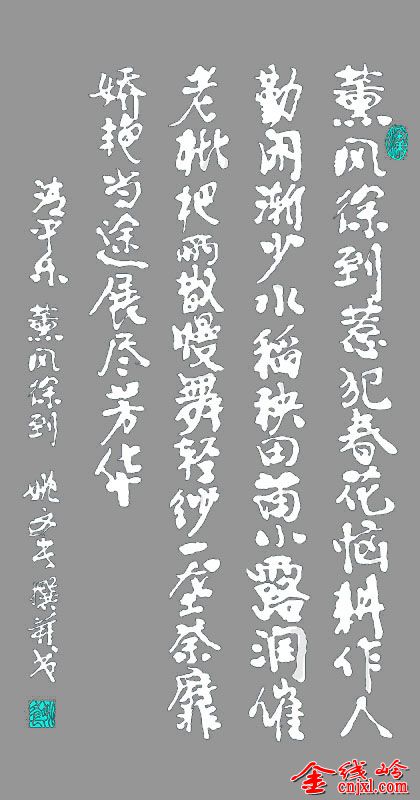 薰风徐到惹犯春花恼耕作人
勤闲渐少水稻秧田苗小露润催
老枇杷雨散慢舞轻纱一垄荼靡
娇艳当途展尽芳华
清平乐 薰风徐到 姚文 撰并书
金线岭
cnjxl.com